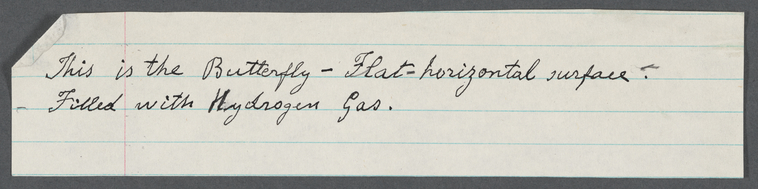 This is the Butterfly - Flat=horizontal surface -
Filled with Hydrogen Gas.